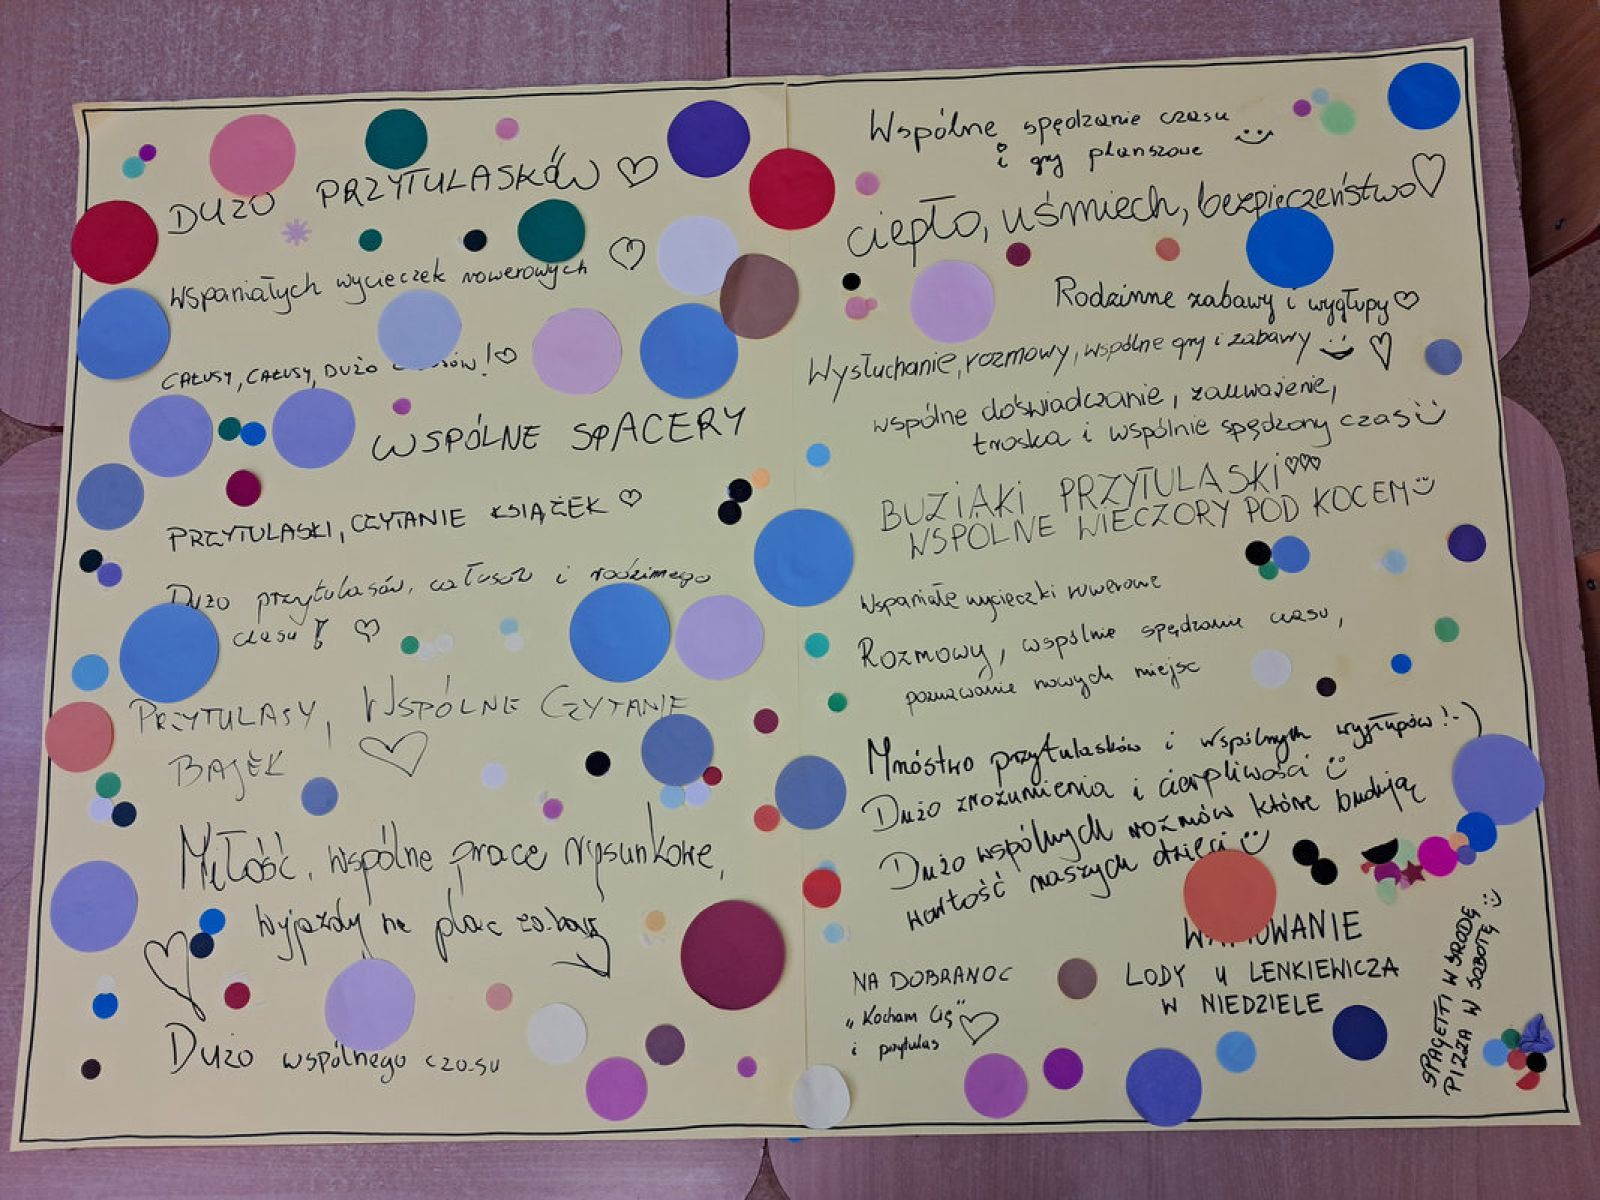 DUŻO PRZYTULASKÓW
Wspaniałych wycieczek rowerowych
CAŁUSY, CAŁUSY, DUŻO !
WSPÓLNE SPACERY
PRZYTULASKI, CZYTANIE KSIĄŻEK
Dużo przytulasów, całusów i rodzinnego
czasu!
PRZYTULASY, WSPÓLNE CZYTANIE
BAJEK
Miłość, wspólne prace rysunkowe,
wyjazdy na plac zabaw
Dużo wspólnego czasu
Wspólne spędzanie czasu
i gry planszowe
ciepło, uśmiech, bezpieczeństwo
Rodzinne zabawy i wygłupy
Wysłuchanie, rozmowy, wspólne gry i zabawy
wspólne doświadczanie, zauważenie,
troska i wspólnie spędzony czas
BUZIAKI PRZYTULASKI
WSPOLNE WIECZORY POD KOCEM
Wspaniałe wycieczki rowerowe
Rozmowy, wspólnie spędzanie czasu,
poznawanie nowych miejsc
Mnóstwo przytulasków i wspólnych wygłupów!-)
Dużo zrozumienia i cierpliwości
Dużo wspólnych rozmów które budują
wartość naszych dzieci
NA DOBRANOC
"Kocham Cię"
i przytulas
LODY U LENKIEWICZA
W NIEDZIELE
SPAGETTI W ŚRODĘ
PIZZA W SOBOTĘ